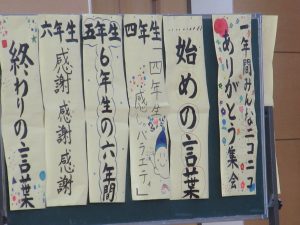 一年間みんなニコニコ
ありがとう集会
始めの言葉
四年生
「四年生
感バラエティ」
五年生
6年生の六年間
六年生
感謝感謝感謝
終わりの言葉